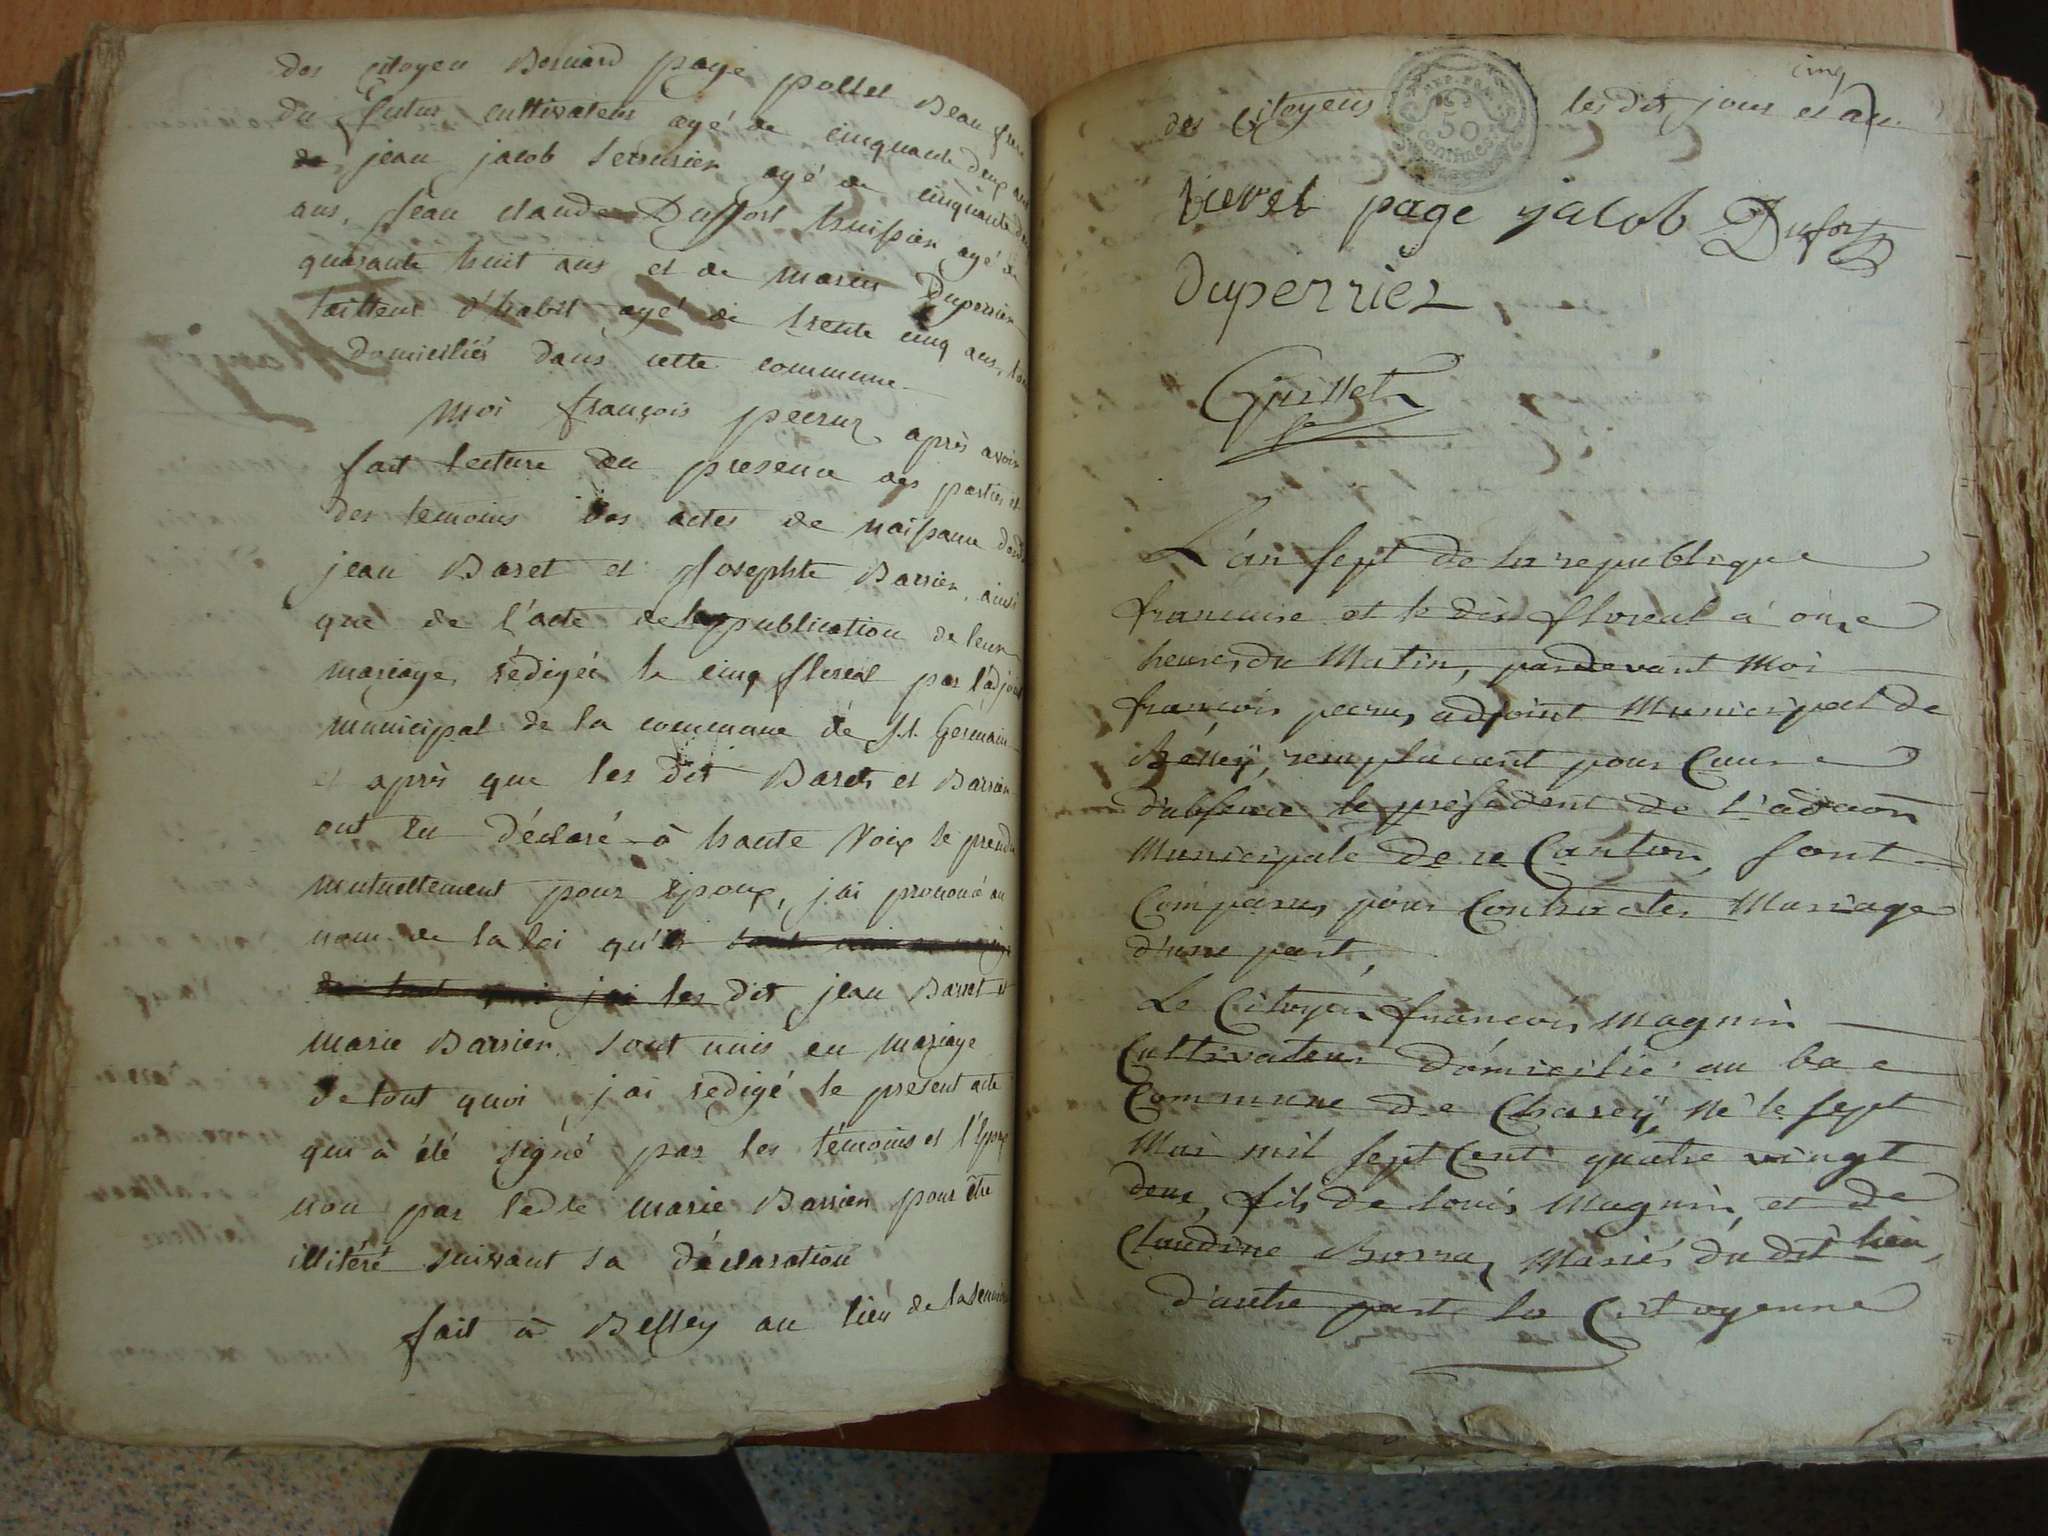 des citoyen Bernard page pollet Beau frere
du futur cultivateur agé de cinquante deux ans
jean jacob serrurier agé de cinquante deux
ans, jean claude Duffort huissier agé de
quarante huit ans et de marin Duperrier
tailleur d'habit agé de trente cinq ans, tous
domiciliés dans cette commune
Moi françois peeruz après avoir
fait lecture en presence des parties et
des temoins des actes de naissance desdits
jean Baret et josephte Barrier, ainsi
que de l'acte de publication de leur
mariage rédigée le cinq floreal par l'adjoint
municipal de la commune de St. Germain
et après que les dit Baret et Barrier
ont eu déclaré à haute voix se prendre
mutuellement pour époux, j'ai prononcé au
nom de la loi qu'
les dit jean Barret et
marie Barrier sont unis en mariage
de tout quoi j'ai rédigé le présent acte
qui a été signé par les témoins et l'époux
non par ledte marie Barrier pour être
illitéré suivant sa déclaration
fait à Belley au lieu de la seance
cinq
des Citoyens les dit jour et an
REP. FRA.
50
CENTIMES
page jacob Dufort
Duperrier
L'an sept de la republique
francaise et le dix floreal a onze
heures du Matin, pardevant Moi
francois adjoint Municipal de
Belley, remplacant pour Cause
d'absence le président de l'adaon
Municipale de ce Canton, sont
Comparus pour Contracter Mariage
d'une part,
Le Citoyen francois Magnin
Cultivateur domicilié au bac
Commune de Chazeÿ, Né le sept
Mai mil sept Cent quatre vingt
deux, fils de Louis Magnin, et de
Claudine Mariés du dit lieu,
d'autre part la Citoyenne